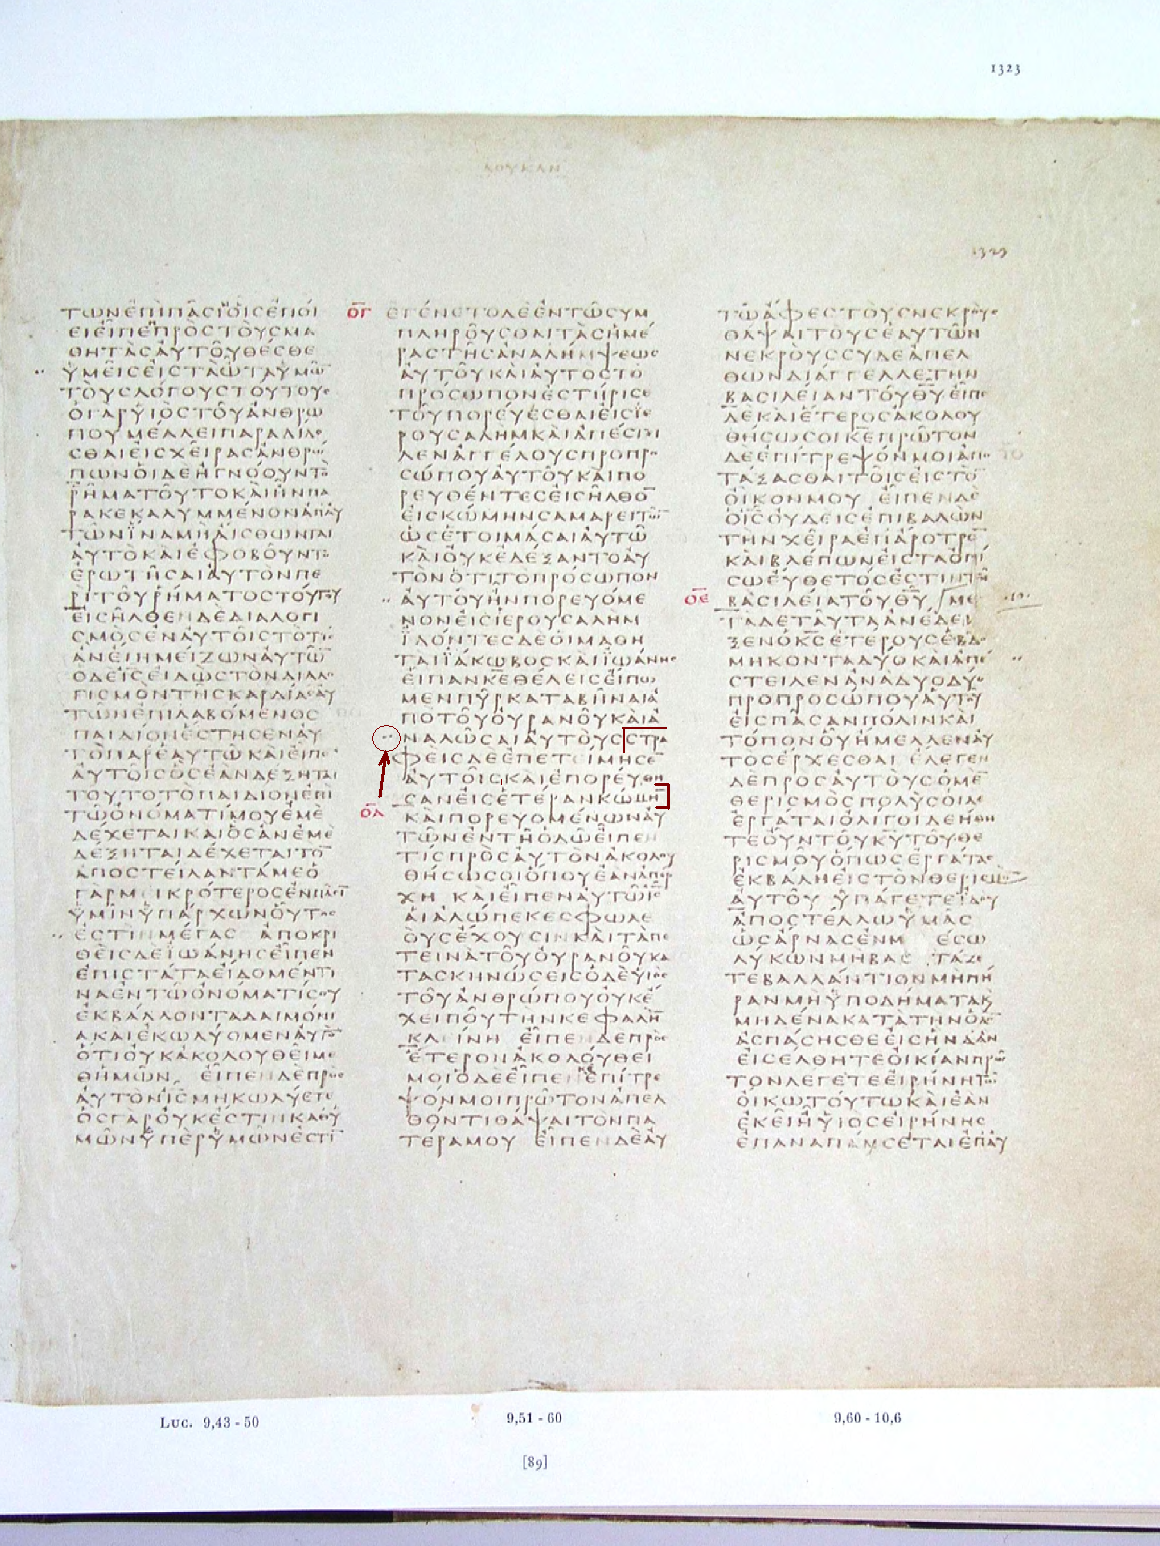 1323
ΛΟΥΚΑΝ
1323
ΤΩΝΕΠΙΠΑCΙΟΙCΕΠΟΙ
ΕΙΕΙΠΕΠΡΟCΤΟΥCΜΑ
ΘΗΤΑCΑΥΤΟΥΘΕCΘΕ
ΥΜΕΙCΕΙCΤΑΩΤΑΥΜΩ̅
ΤΟΥCΛΟΓΟΥCΤΟΥΤΟΥC
ΟΓΑΡΥΙΟCΤΟΥΑΝΘΡΩ
ΠΟΥΜΕΛΛΕΙΠΑΡΑΔΙΔΟ
CΘΑΙΕΙCΧΕΙΡΑCΑΝΘΡΩ
ΠΩΝΟΙΔΕΗΓΝΟΟΥΝΤΟ
ΡΗΜΑΤΟΥΤΟΚΑΙΗΝΠΑ
ΡΑΚΕΚΑΛΥΜΜΕΝΟΝΑΠΑΥ
ΤΩΝΙΝΑΜΗΑΙCΘΩΝΤΑΙ
ΑΥΤΟΚΑΙΕΦΟΒΟΥΝΤΟ
ΕΡΩΤΗCΑΙΑΥΤΟΝΠΕ
ΡΙΤΟΥΡΗΜΑΤΟCΤΟΥΤΟΥ
ΕΙCΗΛΘΕΝΔΕΔΙΑΛΟΓΙ
CΜΟCΕΝΑΥΤΟΙCΤΟΤΙC
ΑΝΕΙΗΜΕΙΖΩΝΑΥΤΩ̅
ΟΔΕΙ̅C̅ΕΙΔΩCΤΟΝΔΙΑΛΟ
ΓΙCΜΟΝΤΗCΚΑΡΔΙΑCΑΥ
ΤΩΝΕΠΙΛΑΒΟΜΕΝΟC
ΠΑΙΔΙΟΝΕCΤΗCΕΝΑΥ
ΤΟΠΑΡΕΑΥΤΩΚΑΙΕΙΠΕ̅
ΑΥΤΟΙCΟCΕΑΝΔΕΞΗΤΑΙ
ΤΟΥΤΟΤΟΠΑΙΔΙΟΝΕΠΙ
ΤΩΟΝΟΜΑΤΙΜΟΥΕΜΕ
ΔΕΧΕΤΑΙΚΑΙΟCΑΝΕΜΕ
ΔΕΞΗΤΑΙΔΕΧΕΤΑΙΤΟ̅
ΑΠΟCΤΕΙΛΑΝΤΑΜΕΟ
ΓΑΡΜΙΚΡΟΤΕΡΟCΕΝΠΑCΙ̅
ΥΜΙΝΥΠΑΡΧΩΝΟΥΤΟC
ΕCΤΙΝΜΕΓΑC ΑΠΟΚΡΙ
ΘΕΙCΔΕΙΩΑΝΗCΕΙΠΕΝ
ΕΠΙCΤΑΤΑΕΙΔΟΜΕΝΤΙ
ΝΑΕΝΤΩΟΝΟΜΑΤΙCΟΥ
ΕΚΒΑΛΛΟΝΤΑΔΑΙΜΟΝΙ
ΑΚΑΙΕΚΩΛΥΟΜΕΝΑΥΤΟ̅
ΟΤΙΟΥΚΑΚΟΛΟΥΘΕΙΜΕ
ΘΗΜΩΝ ΕΙΠΕΝΔΕΠΡΟC
ΑΥΤΟΝΙ̅C̅ΜΗΚΩΛΥΕΤΕ
ΟCΓΑΡΟΥΚΕCΤΙΝΚΑΘΥ
ΜΩΝΥΠΕΡΥΜΩΝΕCΤΙ̅
Ο̅Γ̅
ΕΓΕΝΕΤΟΔΕΕΝΤΩCΥΜ
ΠΛΗΡΟΥCΘΑΙΤΑCΗΜΕ
ΡΑCΤΗCΑΝΑΛΗΜΨΕΩC
ΑΥΤΟΥΚΑΙΑΥΤΟCΤΟ
ΠΡΟCΩΠΟΝΕCΤΗΡΙCΕ
ΤΟΥΠΟΡΕΥΕCΘΑΙΕΙCΙΕ
ΡΟΥCΑΛΗΜΚΑΙΑΠΕCΤΙ
ΛΕΝΑΓΓΕΛΟΥCΠΡΟΠΡΟ
CΩΠΟΥΑΥΤΟΥΚΑΙΠΟ
ΡΕΥΘΕΝΤΕCΕΙCΗΛΘΟ̅
ΕΙCΚΩΜΗΝCΑΜΑΡΕΙΤΩ̅
ΩCΕΤΟΙΜΑCΑΙΑΥΤΩ
ΚΑΙΟΥΚΕΔΕΞΑΝΤΟΑΥ
ΤΟΝΟΤΙΤΟΠΡΟCΩΠΟΝ
ΑΥΤΟΥΗΝΠΟΡΕΥΟΜΕ
ΝΟΝΕΙCΙΕΡΟΥCΑΛΗΜ
ΙΔΟΝΤΕCΔΕΟΙΜΑΘΗ
ΤΑΙΙΑΚΩΒΟCΚΑΙΙΩΑΝΗC
ΕΙΠΑΝΚ̅Ε̅ΘΕΛΕΙCΕΙΠΩ
ΜΕΝΠΥΡΚΑΤΑΒΗΝΑΙΑ
ΠΟΤΟΥΟΥΡΑΝΟΥΚΑΙΑ
ΝΑΛΩCΑΙΑΥΤΟΥCCΤΡΑ
ΦΕΙCΔΕΕΠΕΤΕΙΜΗCΕ̅
ΑΥΤΟΙCΚΑΙΕΠΟΡΕΥΘΗ
CΑΝΕΙCΕΤΕΡΑΝΚΩΜΗ̅
Ο̅Δ̅
ΚΑΙΠΟΡΕΥΟΜΕΝΩΝΑΥ
ΤΩΝΕΝΤΗΟΔΩΕΙΠΕΝ
ΤΙCΠΡΟCΑΥΤΟΝΑΚΟΛΟΥ
ΘΗCΩCΟΙΟΠΟΥΕΑΝΑΠΕΡ
ΧΗ ΚΑΙΕΙΠΕΝΑΥΤΩΙ̅C̅
ΑΙΑΛΩΠΕΚΕCΦΩΛΕ
ΟΥCΕΧΟΥCΙΝΚΑΙΤΑΠΕ
ΤΕΙΝΑΤΟΥΟΥΡΑΝΟΥΚΑ
ΤΑCΚΗΝΩCΕΙCΟΔΕΥΙΟC
ΤΟΥΑΝΘΡΩΠΟΥΟΥΚΕ
ΧΕΙΠΟΥΤΗΝΚΕΦΑΛΗ̅
ΚΛΕΙΝΗ ΕΙΠΕΝΔΕΠΡΟC
ΕΤΕΡΟΝΑΚΟΛΟΥΘΕΙ
ΜΟΙΟΔΕΕΙΠΕΝΕΠΙΤΡΕ
ΨΟΝΜΟΙΠΡΩΤΟΝΑΠΕΛ
ΘΟΝΤΙΘΑΨΑΙΤΟΝΠΑ
ΤΕΡΑΜΟΥ ΕΙΠΕΝΔΕΑΥ
ΤΩΑΦΕCΤΟΥCΝΕΚΡΟΥC
ΘΑΨΑΙΤΟΥCΕΑΥΤΩΝ
ΝΕΚΡΟΥCCΥΔΕΑΠΕΛ
ΘΩΝΔΙΑΓΓΕΛΛΕΤΗΝ
ΒΑCΙΛΕΙΑΝΤΟΥΘ̅Υ̅ΕΙΠΕ̅
ΔΕΚΑΙΕΤΕΡΟCΑΚΟΛΟΥ
ΘΗCΩCΟΙΚ̅Ε̅ΠΡΩΤΟΝ
ΔΕΕΠΙΤΡΕΨΟΝΜΟΙΑΠΟ
ΤΑΞΑCΘΑΙΤΟΙCΕΙCΤΟ̅
ΟΙΚΟΝΜΟΥ ΕΙΠΕΝΔΕ
ΟΙ̅C̅ΟΥΔΕΙCΕΠΙΒΑΛΩΝ
ΤΗΝΧΕΙΡΑΕΠΑΡΟΤΡΟ̅
ΚΑΙΒΛΕΠΩΝΕΙCΤΑΟΠΙ
CΩΕΥΘΕΤΟCΕCΤΙΝΤΗ
Ο̅Ε̅
ΒΑCΙΛΕΙΑΤΟΥΘ̅Υ̅ ΜΕ
ΤΑΔΕΤΑΥΤΑΑΝΕΔΕΙ
ΞΕΝΟΚ̅C̅ΕΤΕΡΟΥCΕΒΔΟ
ΜΗΚΟΝΤΑΔΥΟΚΑΙΑΠΕ
CΤΕΙΛΕΝΑΝΑΔΥΟΔΥΟ
ΠΡΟΠΡΟCΩΠΟΥΑΥΤΟΥ
ΕΙCΠΑCΑΝΠΟΛΙΝΚΑΙ
ΤΟΠΟΝΟΥΗΜΕΛΛΕΝΑΥ
ΤΟCΕΡΧΕCΘΑΙ ΕΛΕΓΕΝ
ΔΕΠΡΟCΑΥΤΟΥCΟΜΕ̅
ΘΕΡΙCΜΟCΠΟΛΥCΟΙΔΕ
ΕΡΓΑΤΑΙΟΛΙΓΟΙΔΕΗΘΗ
ΤΕΟΥΝΤΟΥΚ̅Υ̅ΤΟΥΘΕ
ΡΙCΜΟΥΟΠΩCΕΡΓΑΤΑC
ΕΚΒΑΛΗΕΙCΤΟΝΘΕΡΙCΜΟ̅
ΑΥΤΟΥ ΥΠΑΓΕΤΕΙΔΟΥ
ΑΠΟCΤΕΛΛΩΥΜΑC
ΩCΑΡΝΑCΕΝΜΕCΩ
ΛΥΚΩΝΜΗΒΑCΤΑΖΕ
ΤΕΒΑΛΛΑΝΤΙΟΝΜΗΠΗ
ΡΑΝΜΗΥΠΟΔΗΜΑΤΑΚΑΙ
ΜΗΔΕΝΑΚΑΤΑΤΗΝΟΔΟ̅
ΑCΠΑCΗCΘΕΕΙCΗΝΔΑΝ
ΕΙCΕΛΘΗΤΕΟΙΚΙΑΝΠΡΩ
ΤΟΝΛΕΓΕΤΕΕΙΡΗΝΗΤΩ
ΟΙΚΩΤΟΥΤΩΚΑΙΕΑΝ
ΕΚΕΙΗΥΙΟCΕΙΡΗΝΗC
ΕΠΑΝΑΠΑΗCΕΤΑΙΕΠΑΥ
Luc. 9,43 - 50
9,51 - 60
9,60 - 10,6
[89]